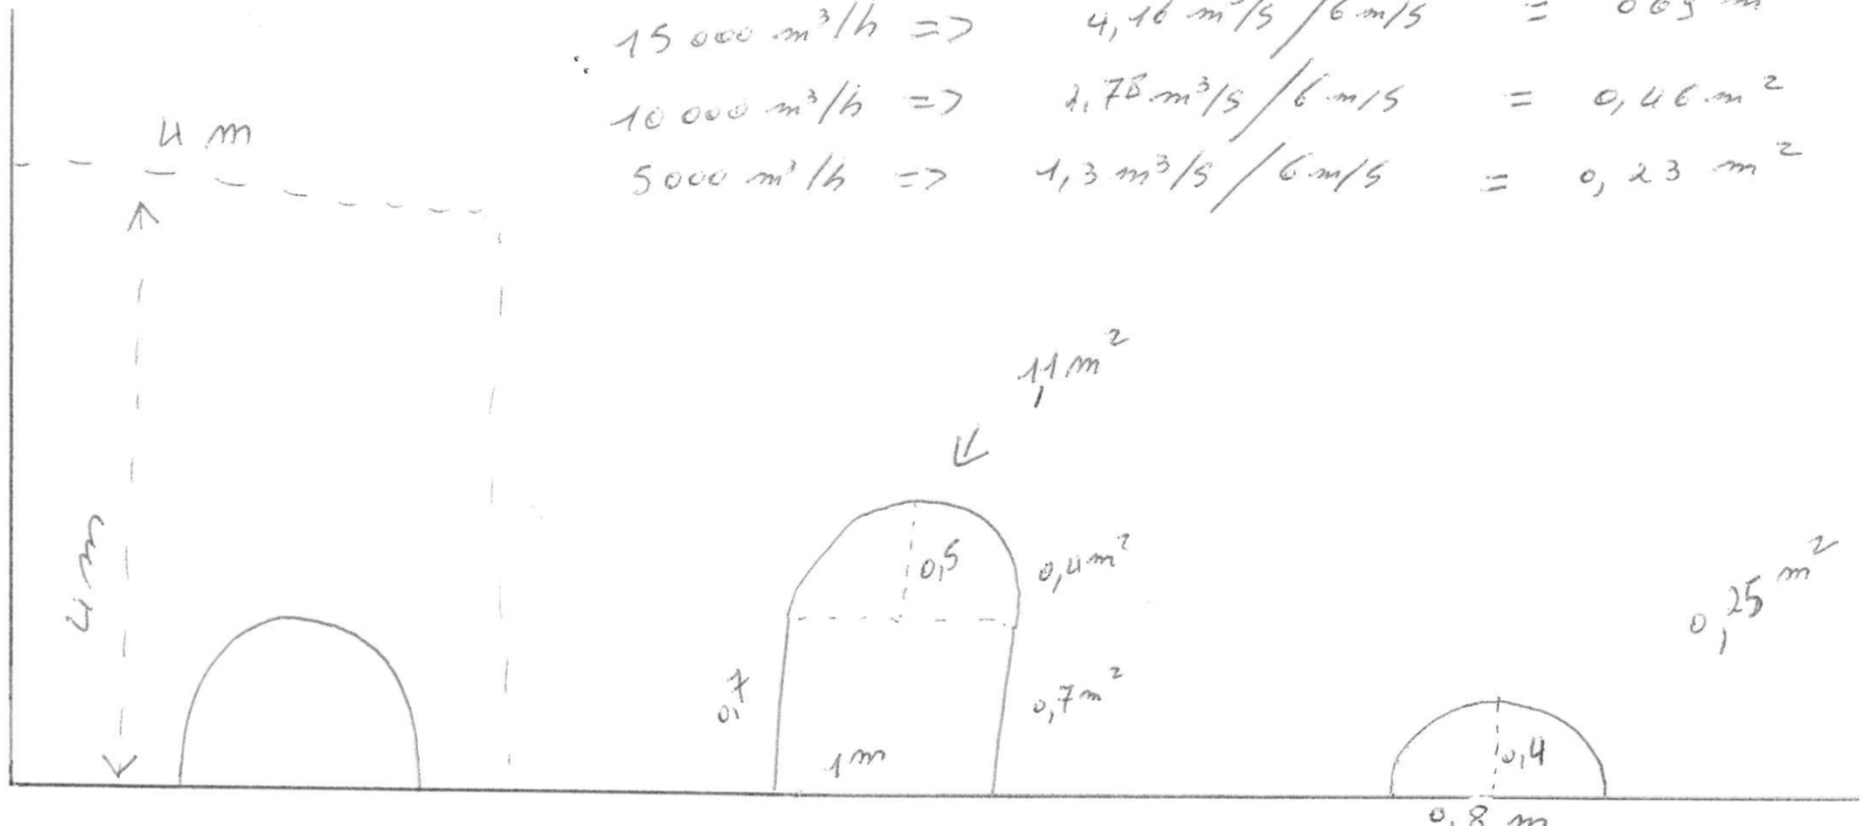 15 000 m³/h => 4,16 m³/s / 6 m/s = 0 69 m²
10 000 m³/h => 2,78 m³/s / 6 m/s = 0,46 m²
5000 m³/h => 1,3 m³/s / 6 m/s = 0,23 m²
4 m
4 m
1,1 m²
0,5
0,4 m²
0,7
0,7 m²
1 m
0,25 m²
0,4
0,8 m